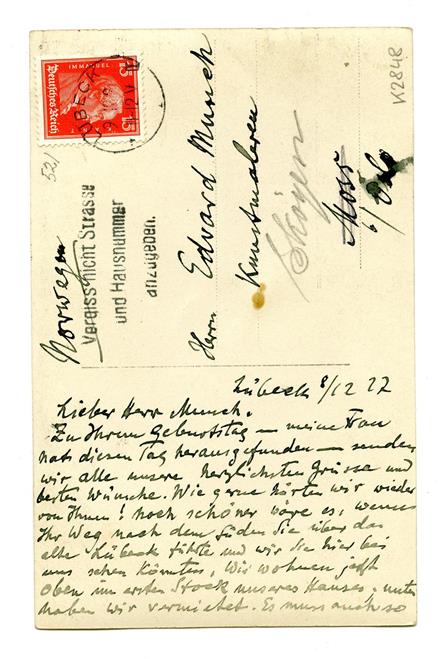 K2848
15 IMMANUEL 15
Deutsches Reich
LÜBECK
521
Vergiss nicht Strasse
und Hausnummer
anzugeben.
Herrn Edvard Munch
Kunstmaleren
Skøyen
Moss
b/ Oslo
Norwegen
Lübeck 8/12 27
Lieber Herr Munch.
Zu Ihrem Geburtstag — meine Frau
hats diesen Tag herausgefunden — senden
wir alle unsere herzlichsten Grüsse und
besten Wünsche. Wie gerne hörten wir wieder
von Ihnen! Noch schöner wäre es, wenn
Ihr Weg nach dem Süden Sie über das
alte Lübeck führte und wir Sie hier bei
uns sehen könnten, Wir wohnen jetzt
oben im ersten Stock unseres Hauses, unten
haben wir vermietet. Es muss auch so